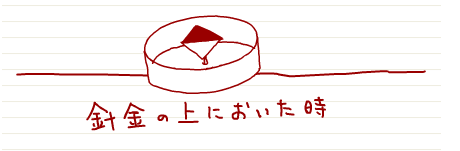 針金の上においた時